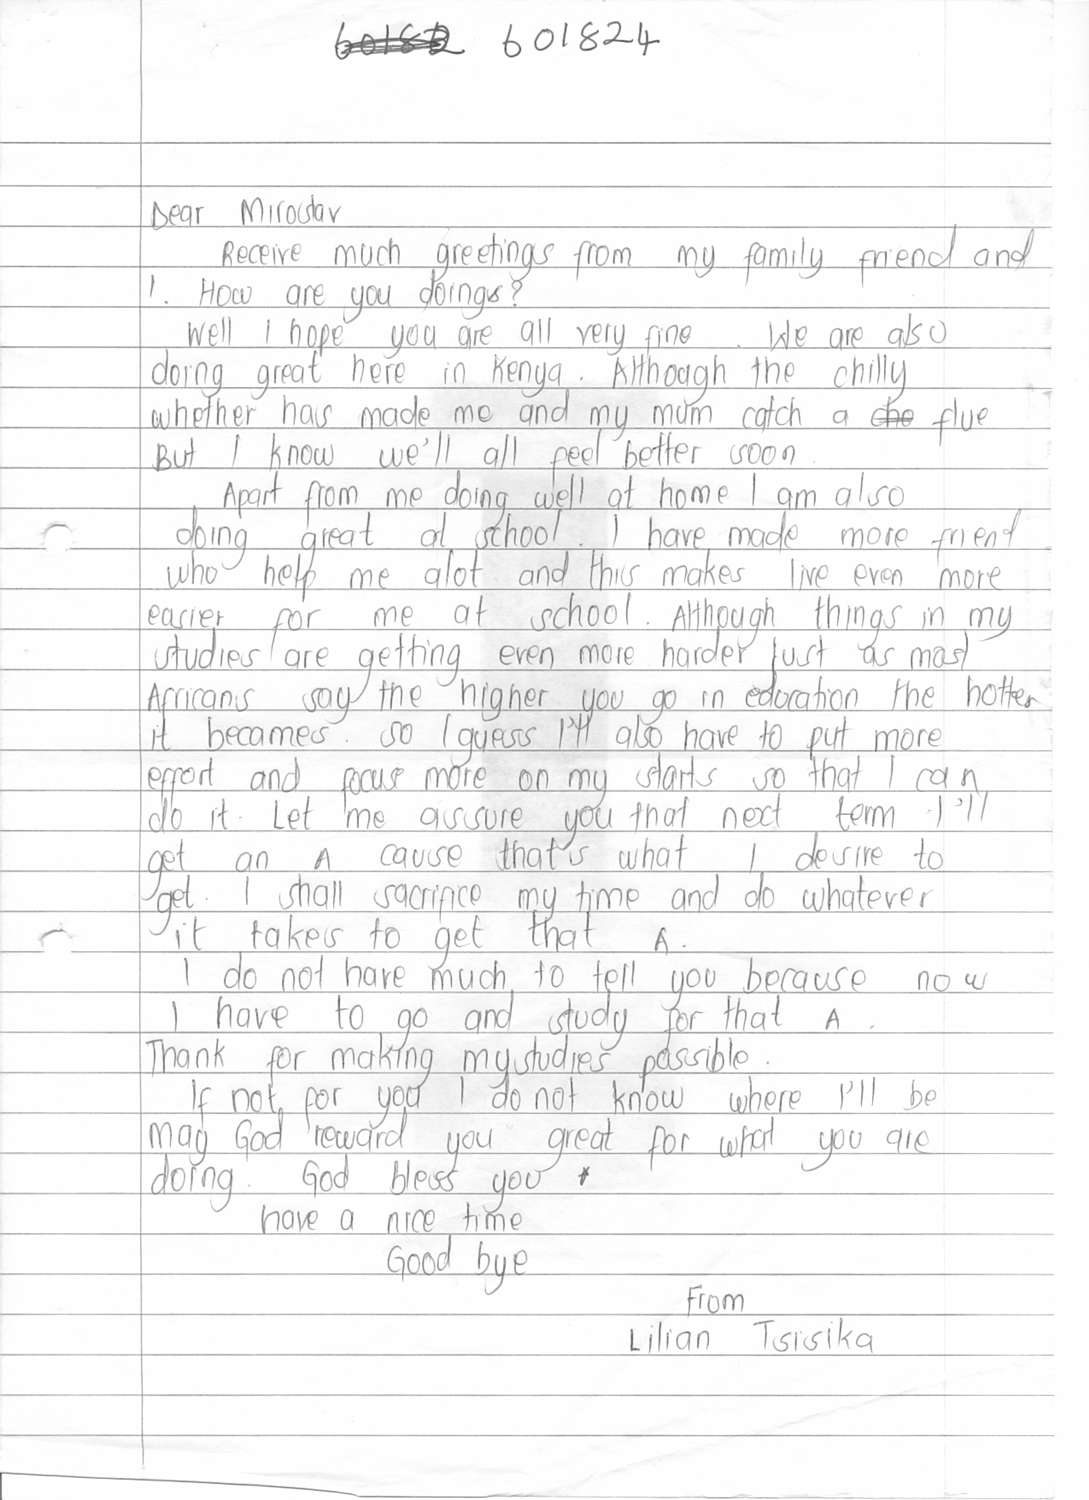 601824
Dear Miroslav
Receive much greetings from my family friend and
I. How are you doings?
Well I hope you are all very fine. We are also
doing great here in Kenya. Although the chilly
whether has made me and my mum catch a flue
But I know we'll all feel better soon
Apart from me doing well at home I am also
doing great at school. I have made more frient
who help me alot and this makes live even more
easier for me at school. Although things in my
studies are getting even more harder just as most
Africans say the higher you go in education the hotter
it becames. So I guess I'll also have to put more
effort and focus more on my starts so that I can
do it. Let me assure you that next term I'll
get an A cause that's what I desire to
get. I shall sacrifice my time and do whatever
it takes to get that A.
I do not have much to tell you because now
I have to go and study for that A.
Thank for making my studies possible.
If not for you I do not know where I'll be
may God reward you great for what you are
doing. God bless you
have a nice time
Good bye
From
Lilian Tsisika